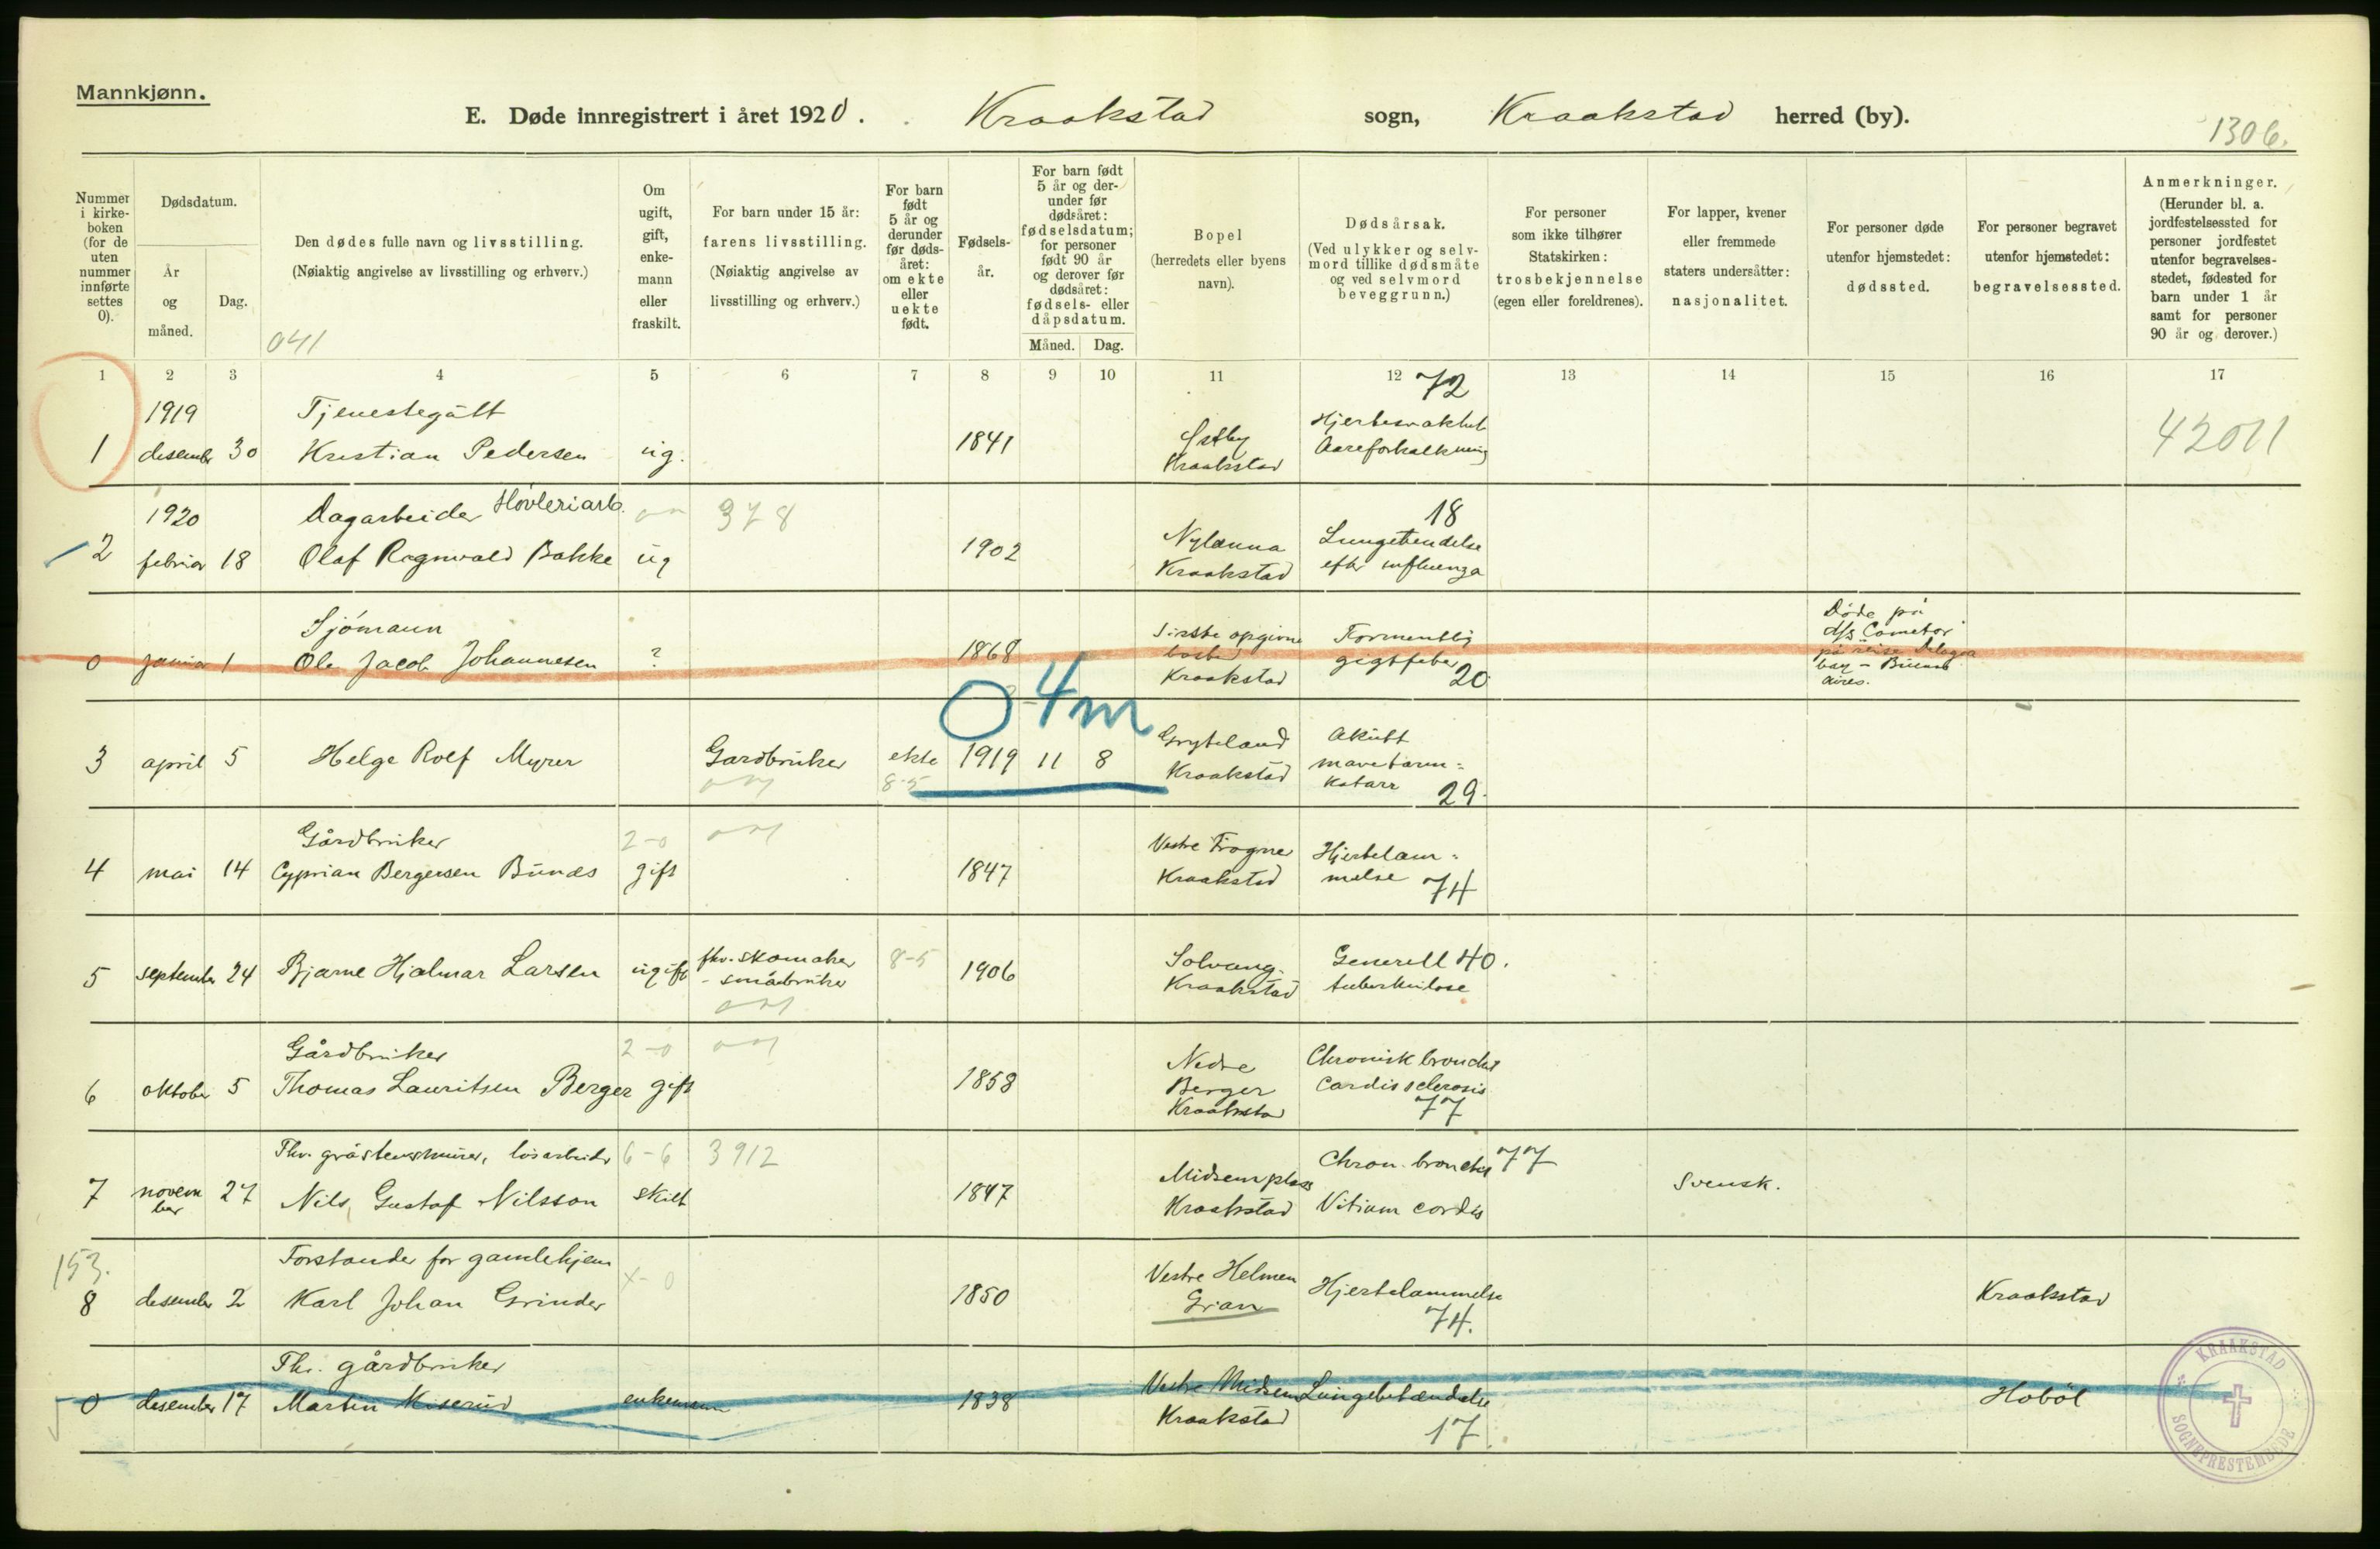 Mannkjønn.
E. Døde innregistrert i året 1920. Kraakstad sogn, Kraakstad herred (by).
1306.
Nummer i kirkeboken (for de uten nummer innførte settes 0).
Dødsdatum.
År og måned.
Dag.
Den dødes fulle navn og livsstilling.
(Nøiaktig angivelse av livsstilling og erhverv.)
041
Om ugift, gift, enkemann eller fraskilt.
For barn under 15 år: farens livsstilling. (Nøiaktig angivelse av livsstilling og erhverv.)
For barn født 5 år og derunder før dødsåret: om ekte eller uekte født.
Fødselsår.
For barn født 5 år og derunder før dødsåret: fødselsdatum; for personer født 90 år og derover før dødsåret: fødsels- eller dåpsdatum.
Måned. Dag.
Bopel (herredets eller byens navn).
Dødsårsak. (Ved ulykker og selvmord tillike dødsmåte og ved selvmord beveggrunn.)
For personer som ikke tilhører Statskirken: trosbekjennelse (egen eller foreldrenes).
For lapper, kvener eller fremmede staters undersåtter: nasjonalitet.
For personer døde utenfor hjemstedet: dødssted.
For personer begravet utenfor hjemstedet: begravelsessted.
Anmerkninger. (Herunder bl. a. jordfestelsessted for personer jordfestet utenfor begravelsesstedet, fødested for barn under 1 år samt for personer 90 år og derover.)
1 2 3 4 5 6 7 8 9 10 11 12 13 14 15 16 17
1919 Tjenestegutt 72
1 desember 30 Kristian Pedersen ug. 1841 Østby Kraakstad Hjertesvakhet Aareforkalkning 42011
1920 Dagarbeider Høvleriarb. 378 18
2 februar 18 Olaf Ragnvald Bakke ug 1902 Nylænna Kraakstad Lungebetendelse efter influenza
Sjómann
0 januar 1 Ole Jacob Johannesen ? 1868 Sidste opgivne bosted Kraakstad Formentlig gigtfeber 20 Døde på d/s "Cometor" på reise Delagoa bay - Buenos Aires.
0 4m
3 april 5 Helge Rolf Myrer Gardbruker ekte 8-5 1919 11 8 Gryteland Kraakstad Akutt mavetarm= katarr 29.
Gårdbruker 2-0
4 mai 14 Cyprian Bergersen Bunæs gift 1847 Vestre Frogner Kraakstad Hjertelam= melse 74
5 september 24 Bjarne Hjalmar Larsen ugift fhv. skomaker - småbruker 8-5 1906 Solvang. Kraakstad Generell 40. tuberkulose
Gårdbruker 2-0
6 oktober 5 Thomas Lauritsen Berger gift 1858 Nedre Berger Kraakstad Chronisk bronchit Cardiosclerosis 77
Fhv. gråstensmurer, løsarbeider 6-6 3912
7 november 27 Nils Gustaf Nilsson skilt 1847 Midsemplass Kraakstad Chron. bronchit 77 Vitium cordis Svensk.
153. Forstander for gamlehjem X-0
8 desember 2 Karl Johan Grinder 1850 Vestre Helmen Gran Hjertelammelse 74. Kraakstad
Fhv. gårdbruker
0 desember 17 Martin Miserud enkemann 1838 Vestre Midsem Kraakstad Lungebetændelse 17 Hobøl
KRAAKSTAD SOGNEPRESTEMBEDE